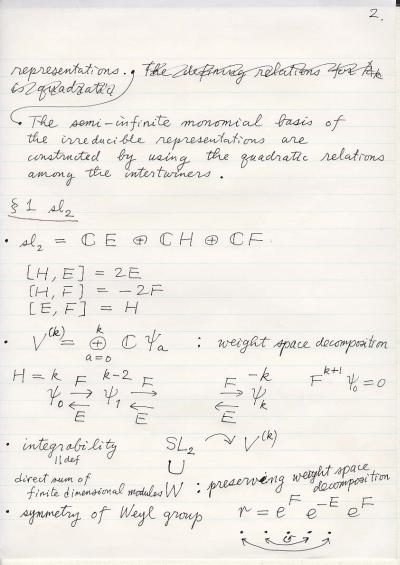 2.
representations. The defining relations for
is quadratic
• The semi-infinite monomial basis of
the irreducible representations are
constructed by using the quadratic relations
among the intertwiners.
§1 sl₂
• sl₂ = ℂE ⊕ ℂH ⊕ ℂF.
[H, E] = 2E
[H, F] = -2F
[E, F] = H
• V^(k) = ⊕_{a=0}^{k} ℂ ψ_a : weight space decomposition
H = k F k-2 F F -k F^{k+1} ψ₀ = 0
ψ₀ → ψ₁ → → ψ_k
← ← ←
E E E
• integrability SL₂ ↷ V^(k)
|| def ∪
direct sum of
finite dimensional modules W : preserving weight space
decomposition
• symmetry of Weyl group r = e^F e^{-E} e^F